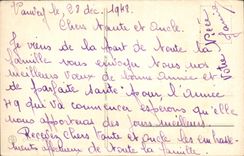 Vanves le, 28 déc. 1948.
Chers Tante et Oncle.
Je viens de la part de Toute la
famille vous envoyer Tous nos
meilleurs vœux de bonne Année et
de parfaite Santé pour, l'Année
49 qui va commencer, espérons qu'elle
nous apportera des jours meilleurs.
Recevez Chers Tante et Oncle les embrasse-
ments affectueux de Toute la famille.
Votre Nièce